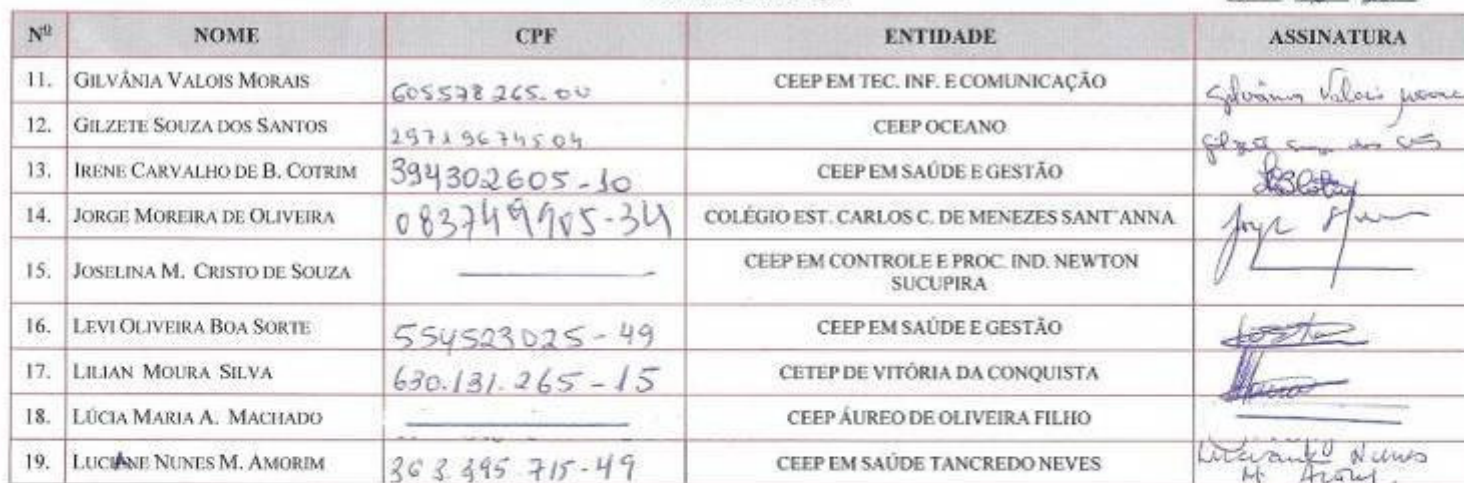 Nº NOME CPF ENTIDADE ASSINATURA
11. GILVÂNIA VALOIS MORAIS 605578265-00 CEEP EM TEC. INF. E COMUNICAÇÃO Gilvânia Valois
12. GILZETE SOUZA DOS SANTOS 29719674504 CEEP OCEANO
13. IRENE CARVALHO DE B. COTRIM 394302605-10 CEEP EM SAÚDE E GESTÃO
14. JORGE MOREIRA DE OLIVEIRA 083749905-34 COLÉGIO EST. CARLOS C. DE MENEZES SANT'ANNA Jorge
15. JOSELINA M. CRISTO DE SOUZA CEEP EM CONTROLE E PROC. IND. NEWTON
SUCUPIRA
16. LEVI OLIVEIRA BOA SORTE 554523025-49 CEEP EM SAÚDE E GESTÃO
17. LILIAN MOURA SILVA 630.131.265-15 CETEP DE VITÓRIA DA CONQUISTA
18. LÚCIA MARIA A. MACHADO CEEP ÁUREO DE OLIVEIRA FILHO
19. LUCIANE NUNES M. AMORIM 363.395.715-49 CEEP EM SAÚDE TANCREDO NEVES Nunes
M.